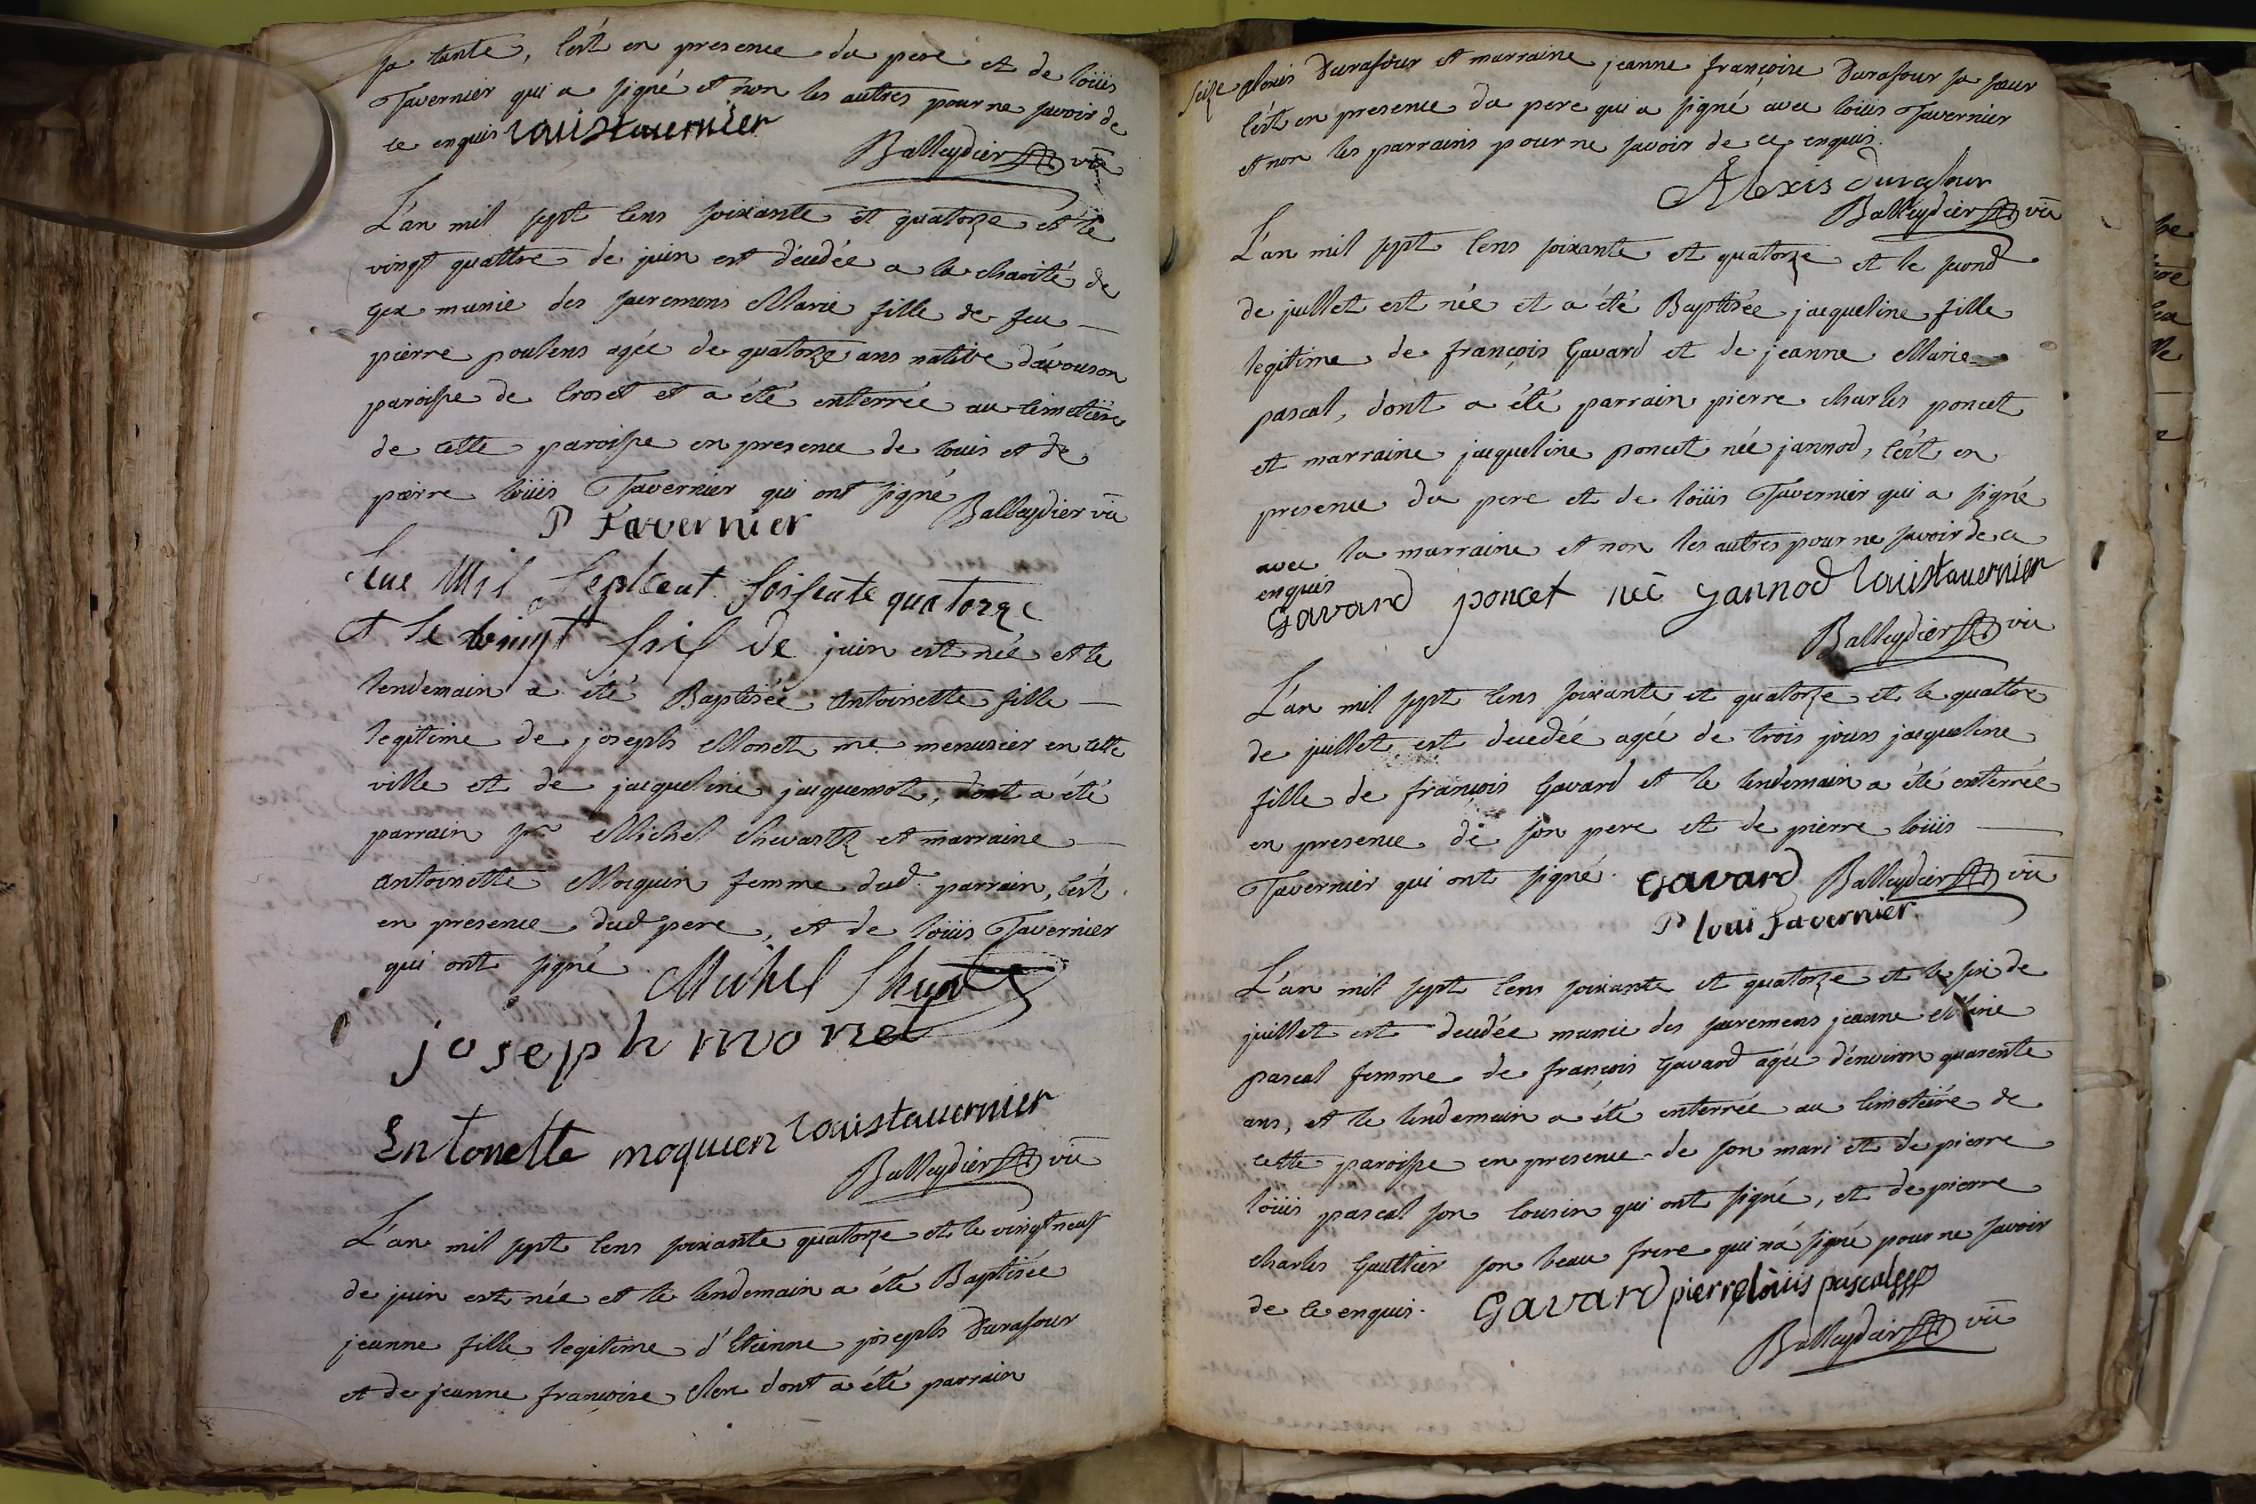 sa tante, C'est en presence du pere et de loüis
Tavernier qui a signé et non les autres pour ne savoir de
ce enquis Louis tauernier
Balleydier vic
L'an mil sept cens soixante et quatorze et le
vingt quattre de juin est décédée a la charité de
gex munie des sacremens Marie fille de feu
pierre poulens agée de quatorze ans native d'avouson
paroisse de Croset et a été enterrée au cimetière
de cette paroisse en presence de louis et de
pierre loüis Tavernier qui ont signé
Balleydier vic
P Tavernier
Lan Mil Septcent Soissente quatorze
et le vingt six de juin est née et le
lendemain a été Baptisée antoinette fille
legitime de joseph Monet me menusier en cette
ville et de jacqueline jacquemot, dont a été
parrain sr Michel et marraine
antoinette Moquin femme dud. parrain, C'est
en presence dud pere, et de loüis Tavernier
qui ont signé Michel
joseph monet
Entonette moquien Louis tauernier
Balleydier vic
L'an mil sept cens soixante quatorze et le vingt neuf
de juin est née et le lendemain a été Baptisée
jeanne fille legitime d'Etienne joseph Durafour
et de jeanne françoise dont a été parrain
alexis Durafour et marraine jeanne françoise Durafour sa sœur
C'est en presence du pere qui a signé avec loüis Tavernier
et non les parrains pour ne savoir de ce enquis.
Alexis durafour
Balleydier vic
L'an mil sept cens soixante et quatorze et le second
de jullet est née et a été Baptisée jacqueline fille
legitime de françois Gavard et de jeanne Marie
pascal, dont a été parrain pierre charles poncet
et marraine jacqueline poncet née jannod, C'est en
presence du pere et de loüis Tavernier qui a signé
avec la marraine et non les autres pour ne savoir de ce
enquis
Gavard poncet neé Jannod Louis tauernier
Balleydier vic
L'an mil sept cens soixante et quatorze et le quattre
de juillet est decedée agée de trois jours jacqueline
fille de françois Gavard et le lendemain a été enterrée
en presence de son pere et de pierre loüis
Tavernier qui ont signé. Gavard Balleydier vic
P loui Tavernier
L'an mil sept cens soixante et quatorze et le six de
juillet est decedée munie des sacremens jeanne Marie
pascal femme de françois Gavard agée d'environ quarente
ans, et le lendemain a été enterrée au cimetière de
cette paroisse en presence de son mari et de pierre
loüis pascal son cousin qui ont signé, et de pierre
charles Gaultier son beau frere qui n'a signé pour ne savoir
de ce enquis. Gavard pierre loüis pascal
Balleydier vic